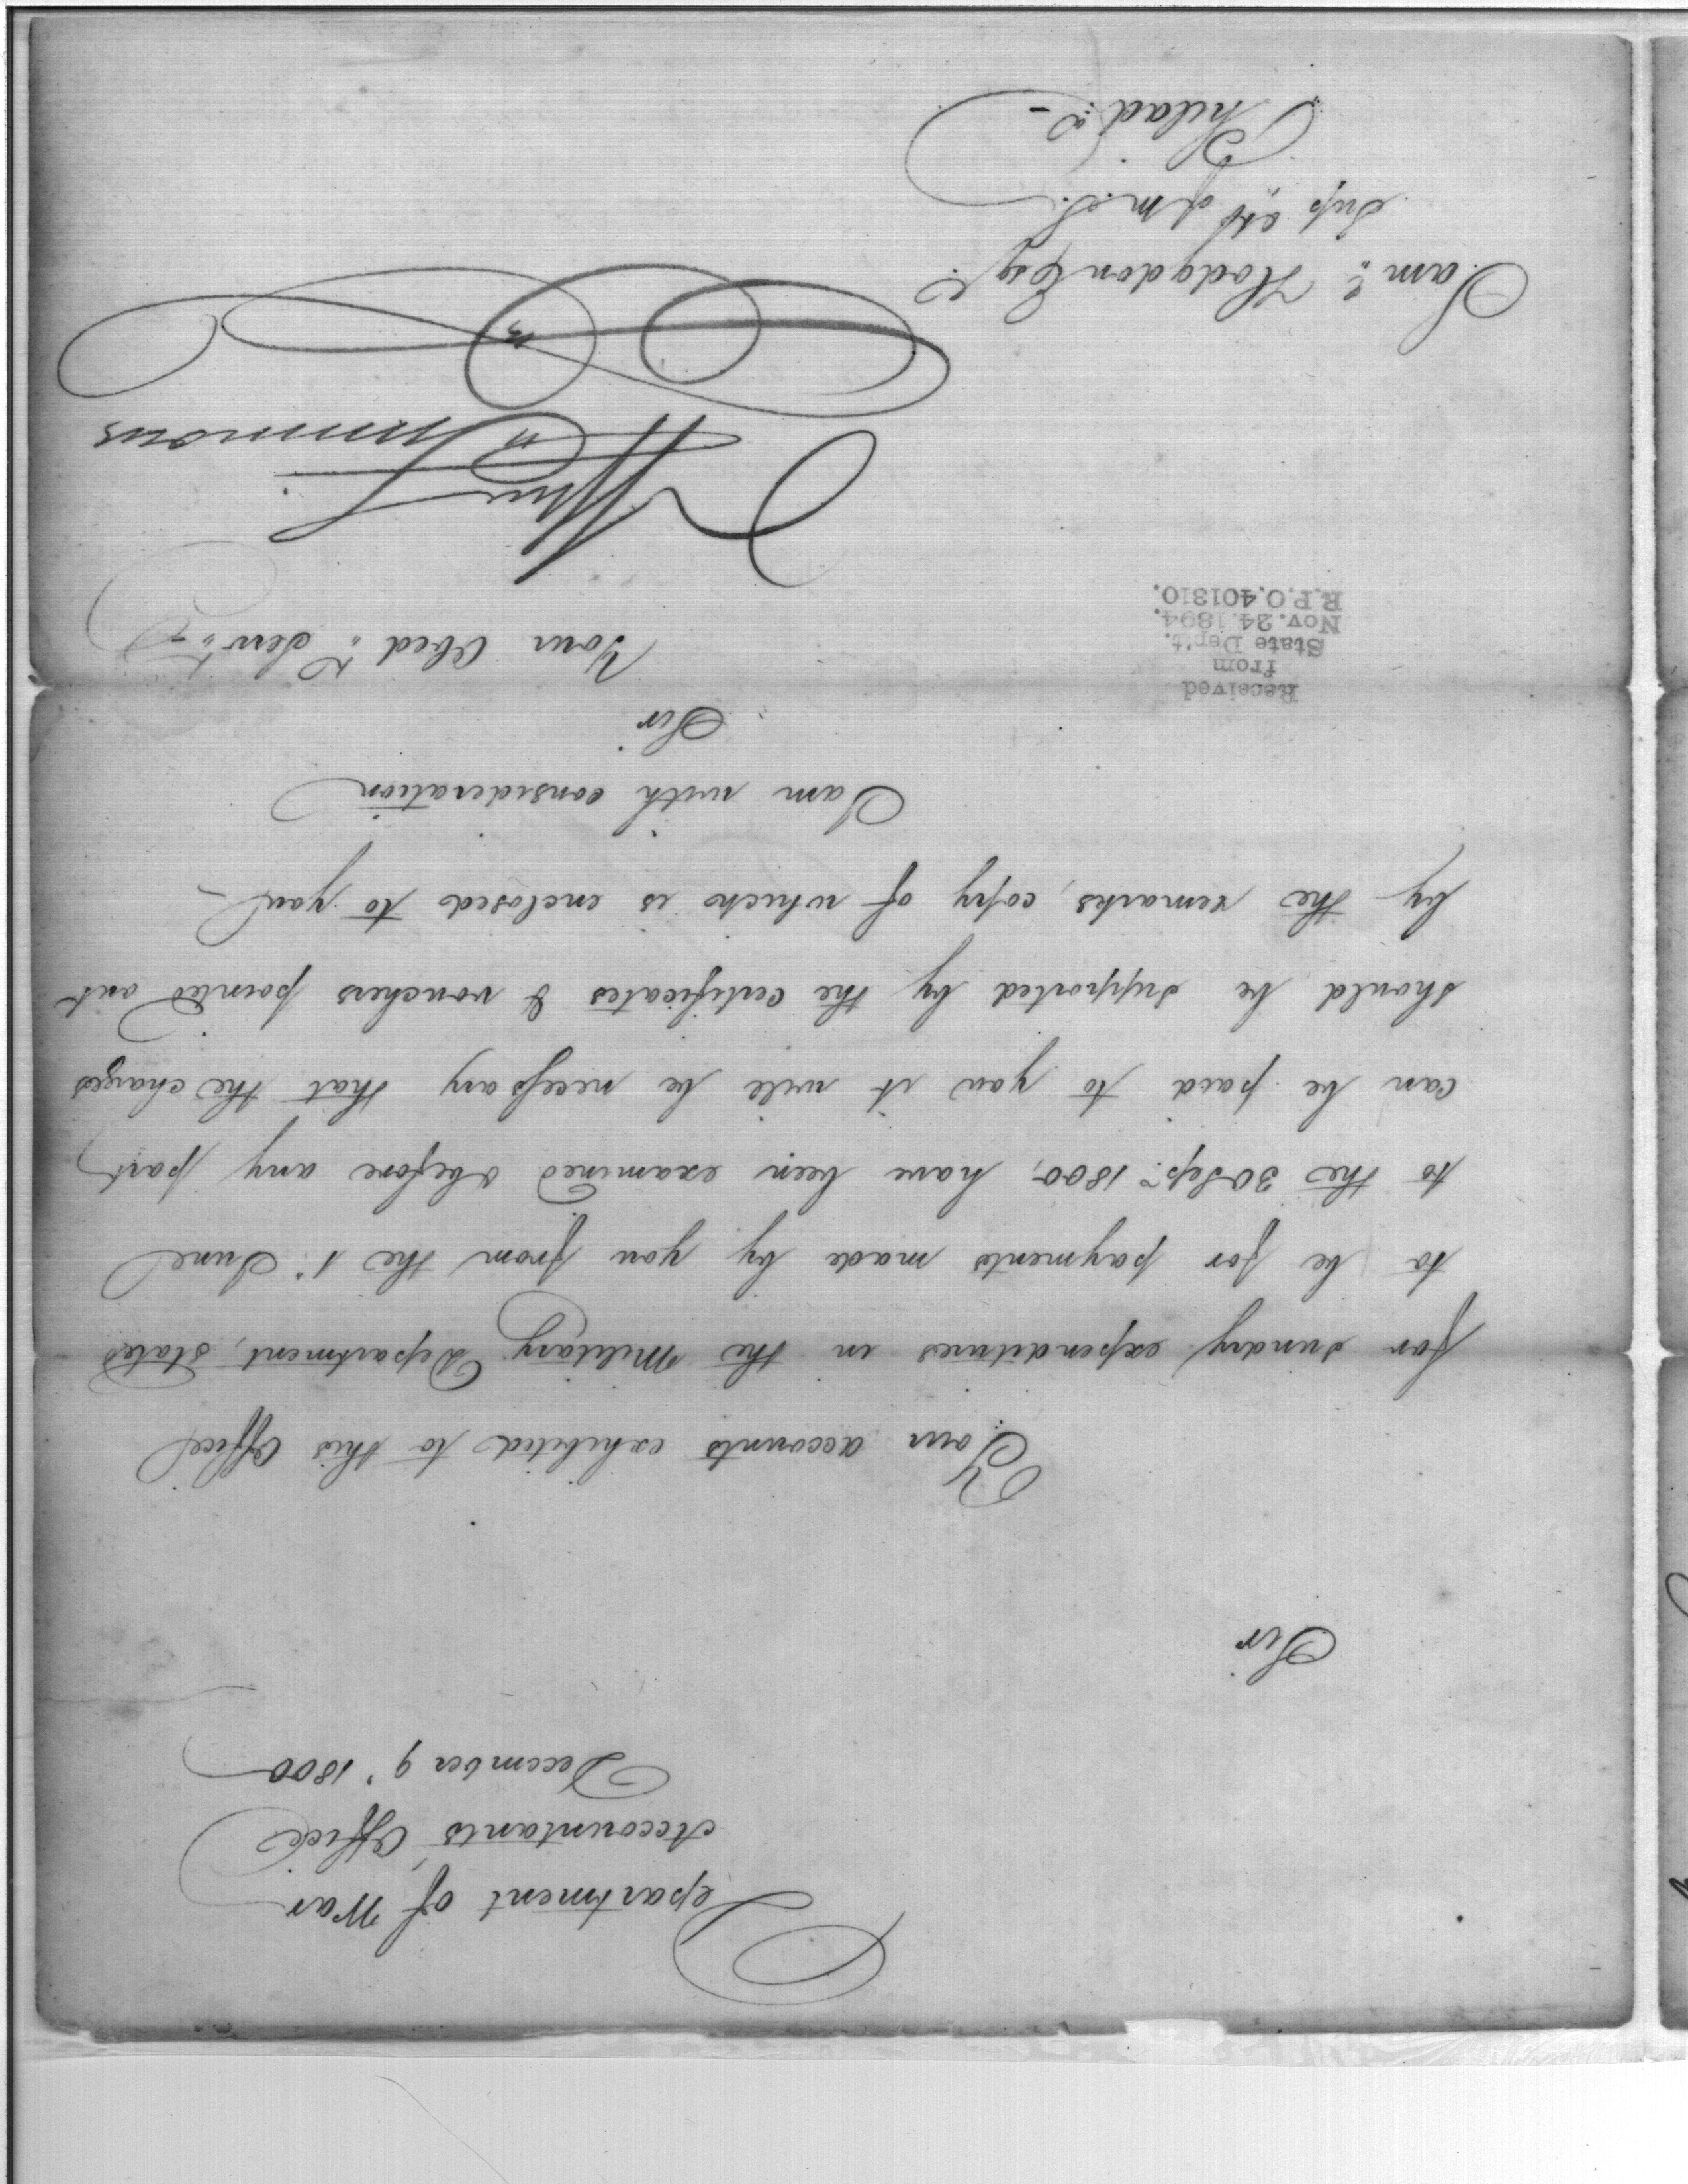 Department of War
Accountants Office
December 9. 1800
Sir
Your accounts exhibited to this Office
for sundry expenditures in the Military Department, stated
to be for payments made by you from the 1. June
to the 30 Sepr. 1800, have been examined & before any part
can be paid to you it will be necessary that the charges
should be supported by the certificates & vouchers pointed out
by the remarks, copy of which is enclosed to you –
I am with consideration
Sir
Your Obedt. Servt.
Wm Simmons
Received
from
State Dep't.
Nov. 24. 1894.
R.P.O. 401310.
Saml. Hodgdon Esqr.
Sup
Philada. –